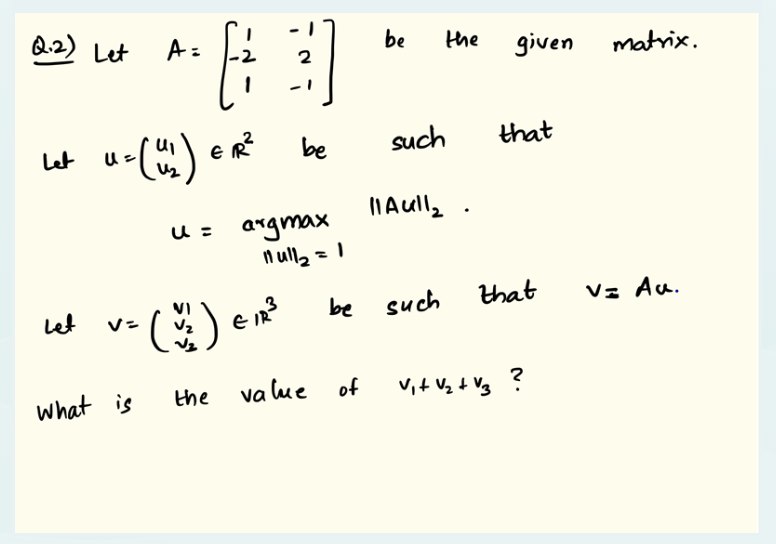 Q.2) Let A = [1 -1
-2 2
1 -1] be the given matrix.
Let u = (u1
u2) ∈ ℝ² be such that
u = argmax ||Au||₂ .
||u||₂ = 1
Let v = (v1
v2
v2) ∈ ℝ³ be such that v = Au.
What is the value of v₁ + v₂ + v₃ ?